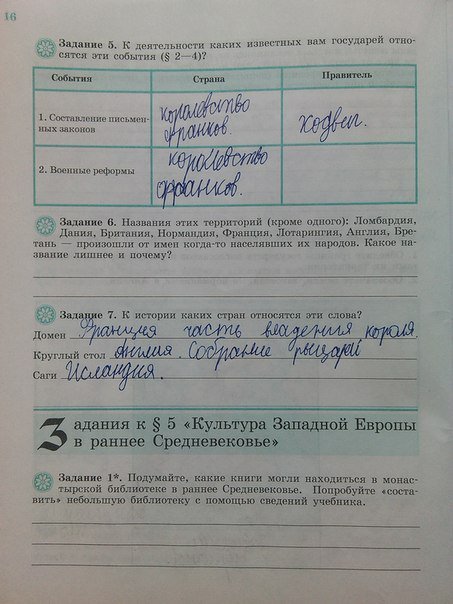 16
Задание 5. К деятельности каких известных вам государей отно-
сятся эти события (§ 2—4)?
События Страна Правитель
1. Составление письмен-
ных законов
королевство
франков.
ходвег.
2. Военные реформы
королевство
франков.
Задание 6. Названия этих территорий (кроме одного): Ломбардия,
Дания, Британия, Нормандия, Франция, Лотарингия, Англия, Бре-
тань — произошли от имен когда-то населявших их народов. Какое на-
звание лишнее и почему?
Задание 7. К истории каких стран относятся эти слова?
Домен Франция часть владения короля.
Круглый стол Англия. Собрание рыцарей
Саги Исландия.
Задания к § 5 «Культура Западной Европы
в раннее Средневековье»
Задание 1*. Подумайте, какие книги могли находиться в монас-
тырской библиотеке в раннее Средневековье. Попробуйте «соста-
вить» небольшую библиотеку с помощью сведений учебника.